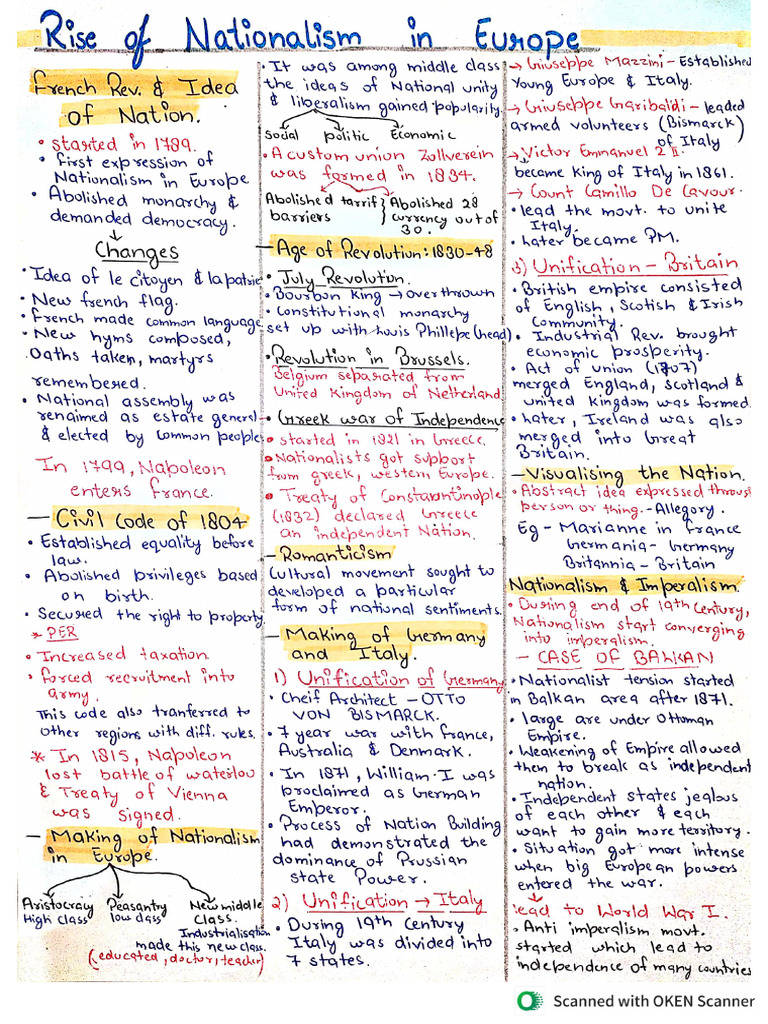 Rise of Nationalism in Europe
French Rev. & Idea
of Nation.
• started in 1789.
• first expression of
Nationalism in Europe
• Abolished monarchy &
demanded democracy.
Changes
• Idea of le citoyen & la patrie
• New french flag.
• French made common language
• New hyms composed,
Oaths taken, martyrs
remembered.
• National assembly was
renaimed as estate general
& elected by common people
In 1799, Napoleon
enters france.
— Civil Code of 1804
• Established equality before
law.
• Abolished privileges based
on birth.
• Secured the right to property
* PER
• Increased taxation
• forced recruitment into
army.
This code also tranferred to
other regions with diff. rules.
* In 1815, Napoleon
lost battle of waterlou
& Treaty of Vienna
was signed.
— Making of Nationalism
in Europe.
Aristocracy Peasantry New middle
High class low class Class.
Industrialisation
made this new class.
(educated, doctor, teacher)
• It was among middle class
the ideas of National unity
& liberalism gained popularity.
Social politic Economic
• A custom union Zollverein
was formed in 1834.
Abolished tarrif } Abolished 28
barriers currency out of
30.
— Age of Revolution: 1830-48
• July Revolution.
• Bourbon King → overthrown
• constitutional monarchy
set up with Louis Phillepe (head)
• Revolution in Brussels.
Belgium separated from
United Kingdom of Netherland
• Greek war of Independence
• started in 1821 in Greece.
• Nationalists got support
from greek, western Europe.
• Treaty of Constantinople
(1832) declared Greece
an independent Nation.
— Romanticism
Cultural movement sought to
developed a particular
form of national sentiments.
— Making of Germany
and Italy.
1) Unification of Germany
• Cheif Architect - OTTO
VON BISMARCK.
• 7 year war with france,
Australia & Denmark.
• In 1871, William-I was
proclaimed as German
Emperor.
• Process of Nation Building
had demonstrated the
dominance of Prussian
state Power.
2) Unification → Italy
• During 19th Century
Italy was divided into
7 states.
→ Giuseppe Mazzini - Established
Young Europe & Italy.
→ Giuseppe Garibaldi - leaded
armed volunteers (Bismarck)
of Italy
→ Victor Emmanuel 2 II.
became king of Italy in 1861.
→ Count Camillo De Cavour.
• lead the movt. to unite
Italy.
• later became PM.
3) Unification - Britain
• British empire consisted
of English, Scotish & Irish
Community.
• Industrial Rev. brought
economic prosperity.
• Act of union (1707)
merged England, Scotland &
united kingdom was formed.
• later, Ireland was also
merged into Great
Britain.
— Visualising the Nation.
• Abstract idea expressed through
person or thing. - Allegory.
Eg - Marianne in france
Germania - Germany
Britannia - Britain
Nationalism & Imperalism.
• During end of 19th Century,
Nationalism start converging
into imperalism.
— CASE OF BALKAN
• Nationalist tension started
in Balkan area after 1871.
• large are under Ottoman
Empire.
• Weakening of Empire allowed
them to break as independent
nation.
• Independent states jealous
of each other & each
want to gain more territory.
• Situation got more intense
when big European powers
entered the war.
lead to World War I.
• Anti imperalism movt.
started which lead to
independence of many countries
Scanned with OKEN Scanner